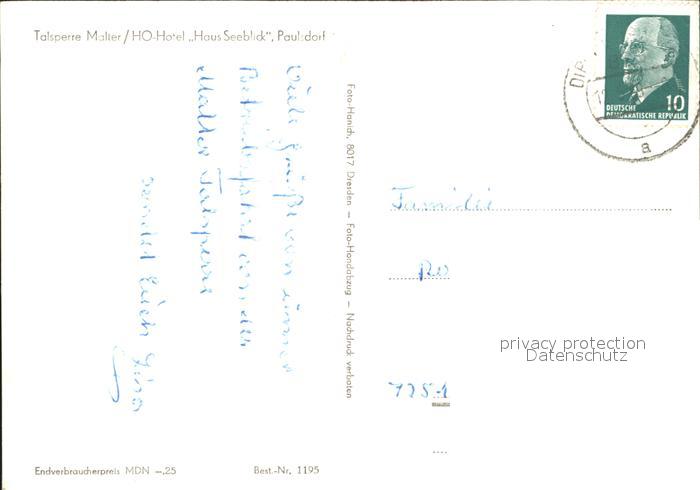 Talsperre Malter / HO-Hotel „Haus Seeblick“, Paulsdorf
Viele Grüße von einer
Betriebsfahrt an der
Malter Talsperre
sendet Euch
Foto-Hanich, 8017 Dresden — Foto-Handabzug — Nachdruck verboten
DEUTSCHE
DEMOKRATISCHE REPUBLIK
10
DIP
a
Familie
privacy protection
Datenschutz
7251
Endverbraucherpreis MDN —,25
Best.-Nr. 1195